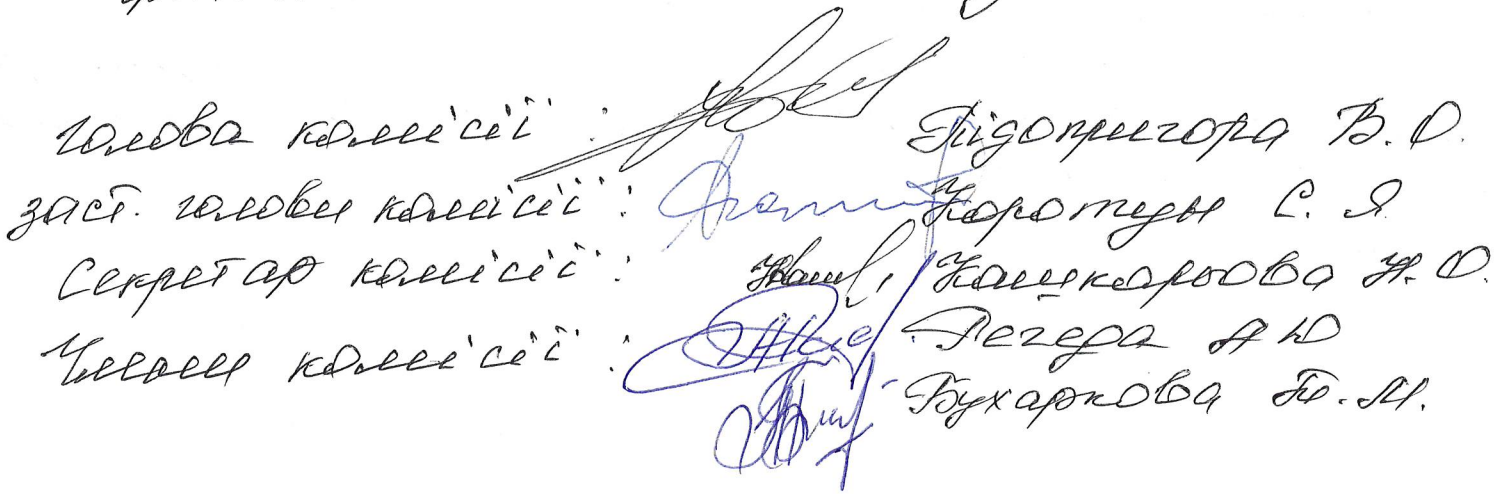 голова комісії : Підопригора В. О.
заст. голови комісії : С. Я.
Секретар комісії : Кашкарьова Н. О.
Члени комісії : Регеда А Ю
Бухаркова Т. М.